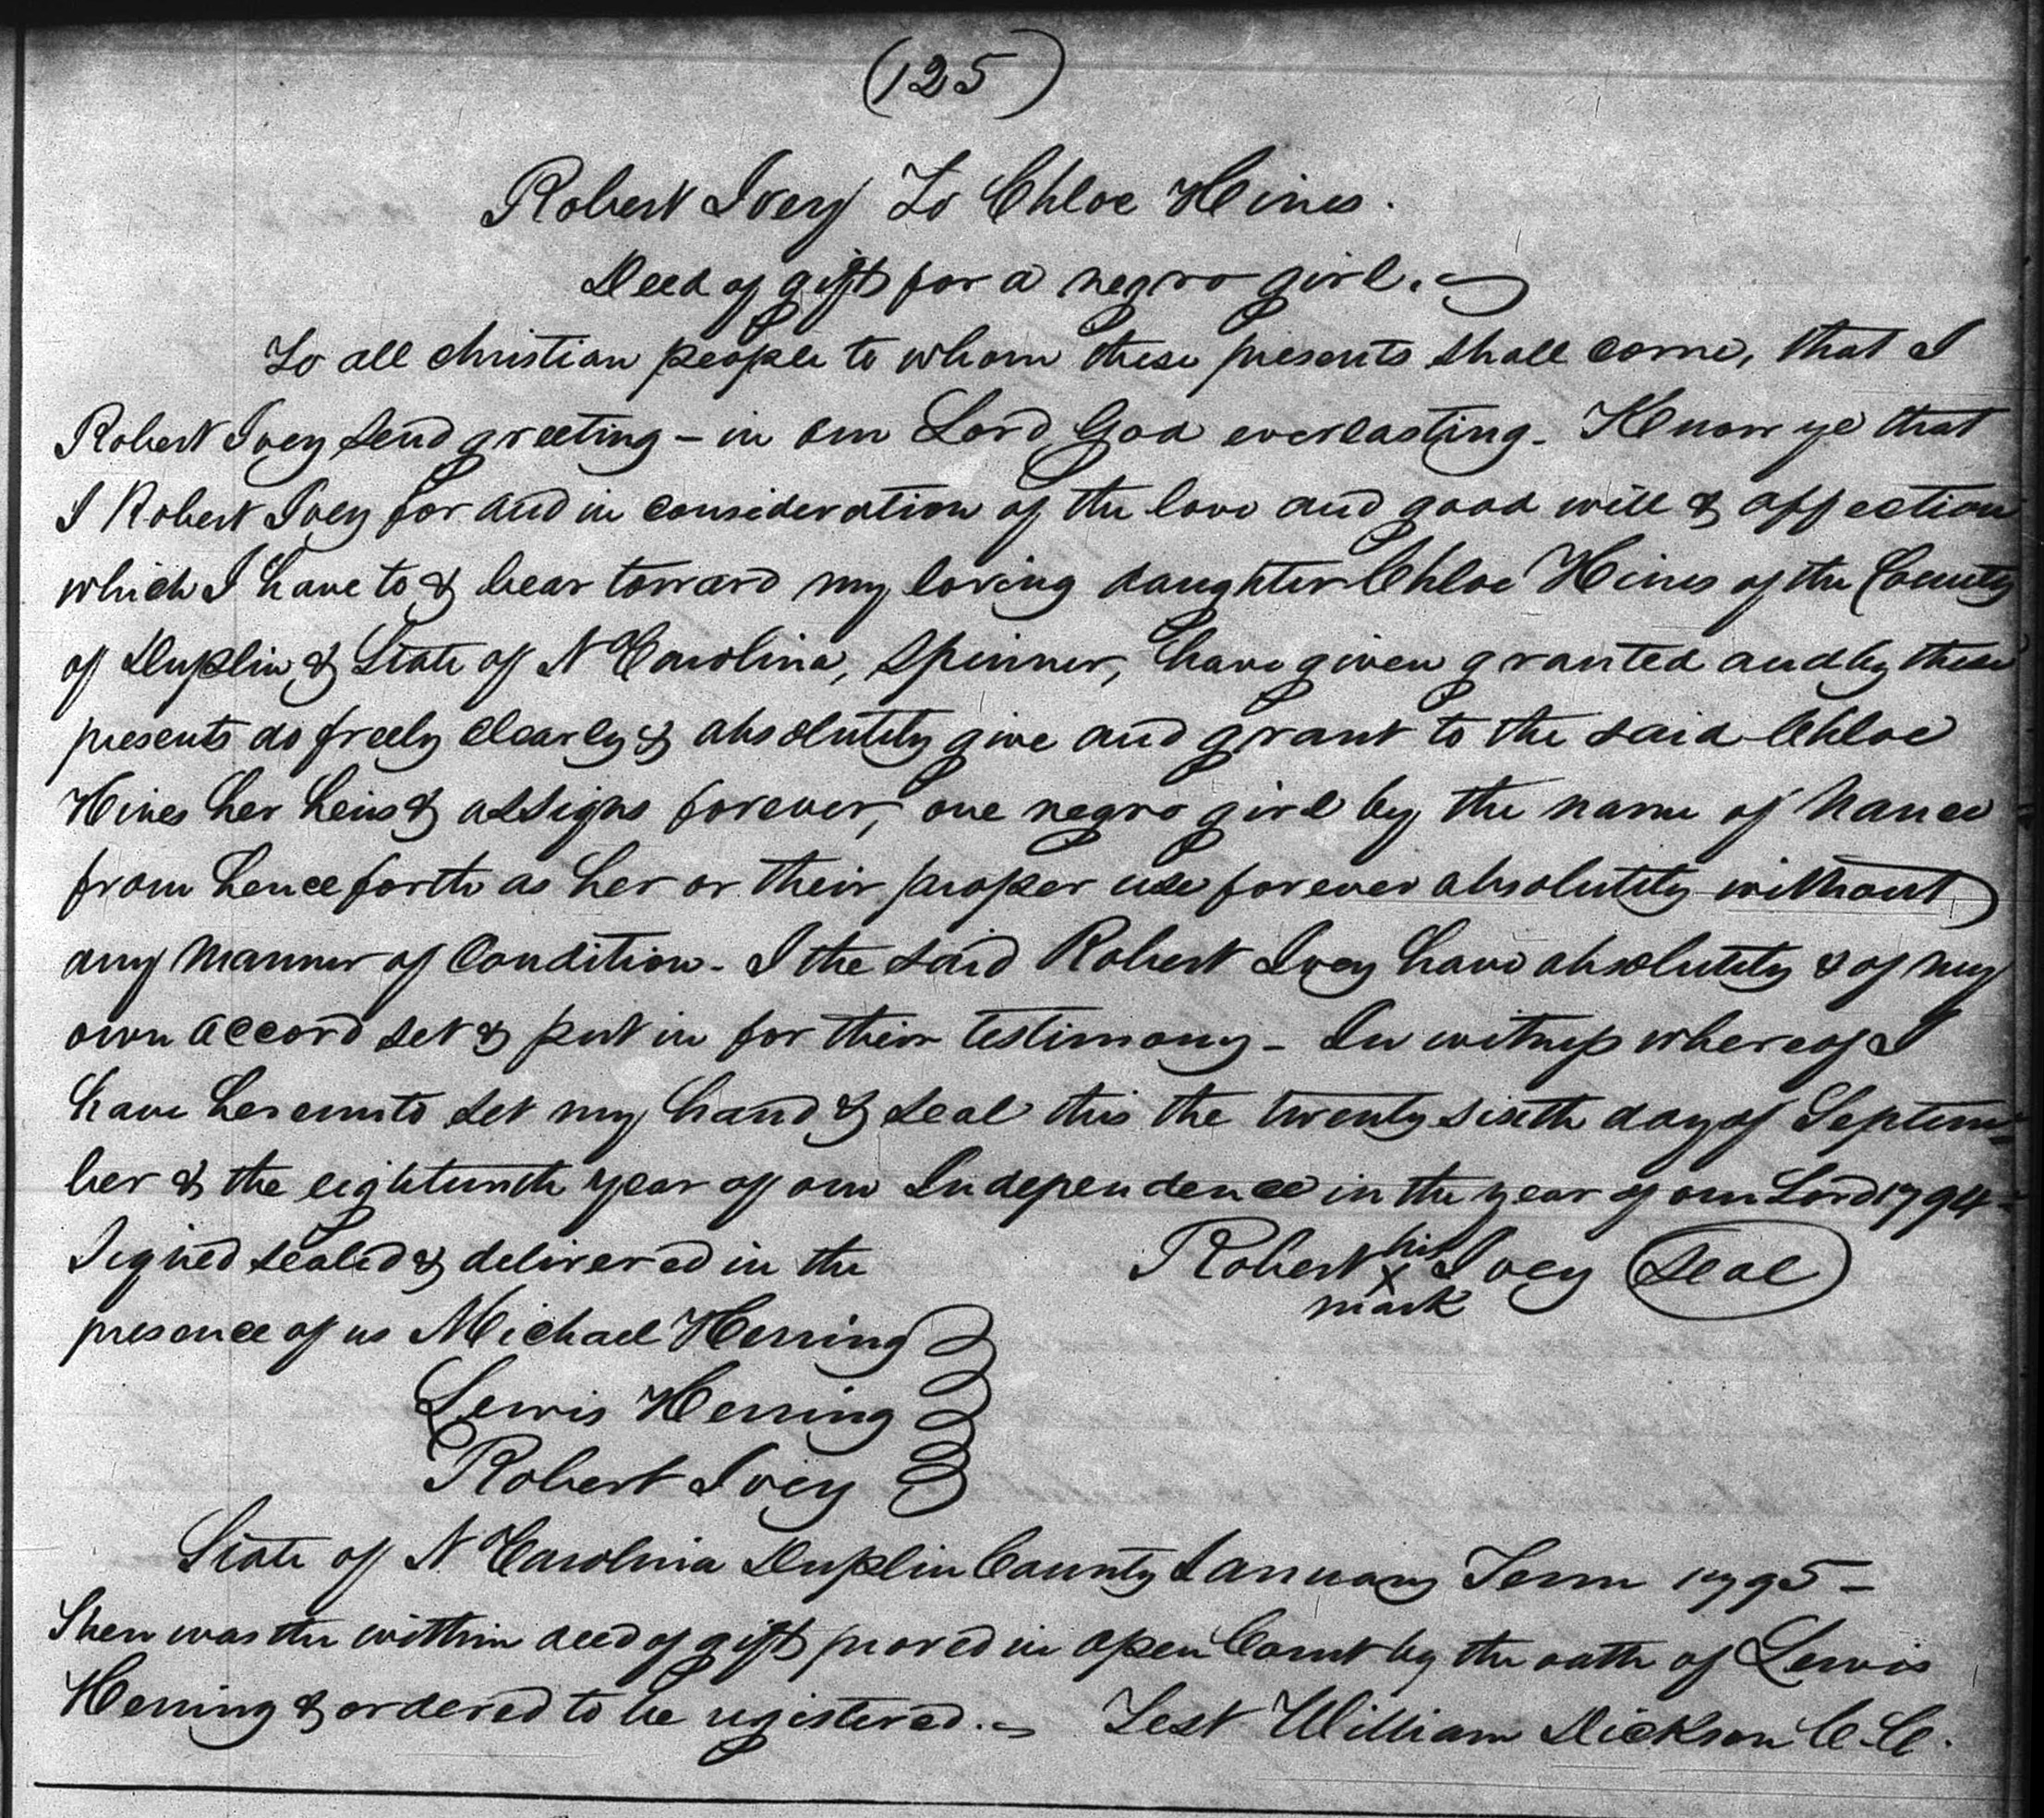 (125)
Robert Ivey To Chloe Hines.
Deed of gift for a negro girl.
To all christian people to whom these presents shall come, that I
Robert Ivey send greeting – in our Lord God everlasting. Know ye that
I Robert Ivey for and in consideration of the love and good will & affection
which I have to & bear toward my loving daughter Chloe Hines of the County
of Duplin & State of N Carolina, Spinner, have given granted and by these
presents do freely clearly & absolutely give and grant to the said Chloe
Hines her heirs & assigns forever, one negro girl by the name of Nance
from henceforth as her or their proper use forever absolutely without
any manner of Condition - I the said Robert Ivey have absolutely & of my
own accord set & put in for their testimony - In witness whereof I
have hereunto set my hand & seal this the twenty sixth day of Septem-
ber & the eighteenth year of our Independence in the year of our Lord 1794-
Signed sealed & delivered in the Robert his X mark Ivey (Seal)
presence of us Michael Herring
Lewis Herring
Robert Ivey
State of N. Carolina Duplin County January Term 1795 –
Then was the within deed of gift proved in open Court by the oath of Lewis
Herring & ordered to be registered. - Test William Dickson C.C.